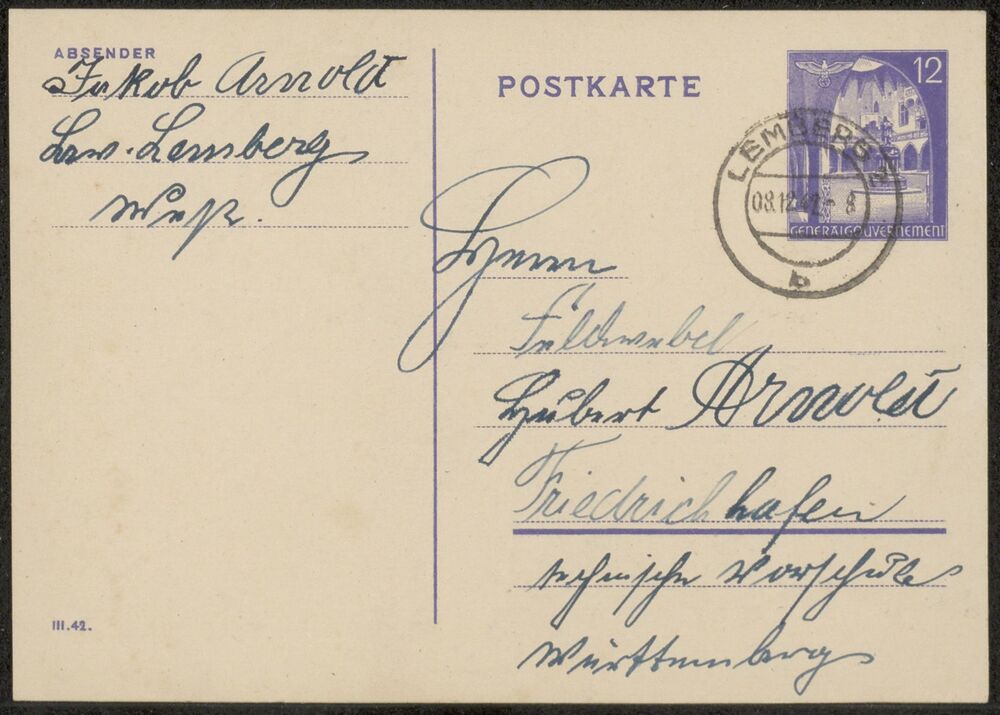 ABSENDER
Jakob Arnold
Lemberg
POSTKARTE
12
LEMBERG 2
08.12.42 - 8
b
GENERALGOUVERNEMENT
Herrn
Feldwebel
Hubert Arnold
Friedrichhafen
technische Vorschule
Württemberg
III.42.